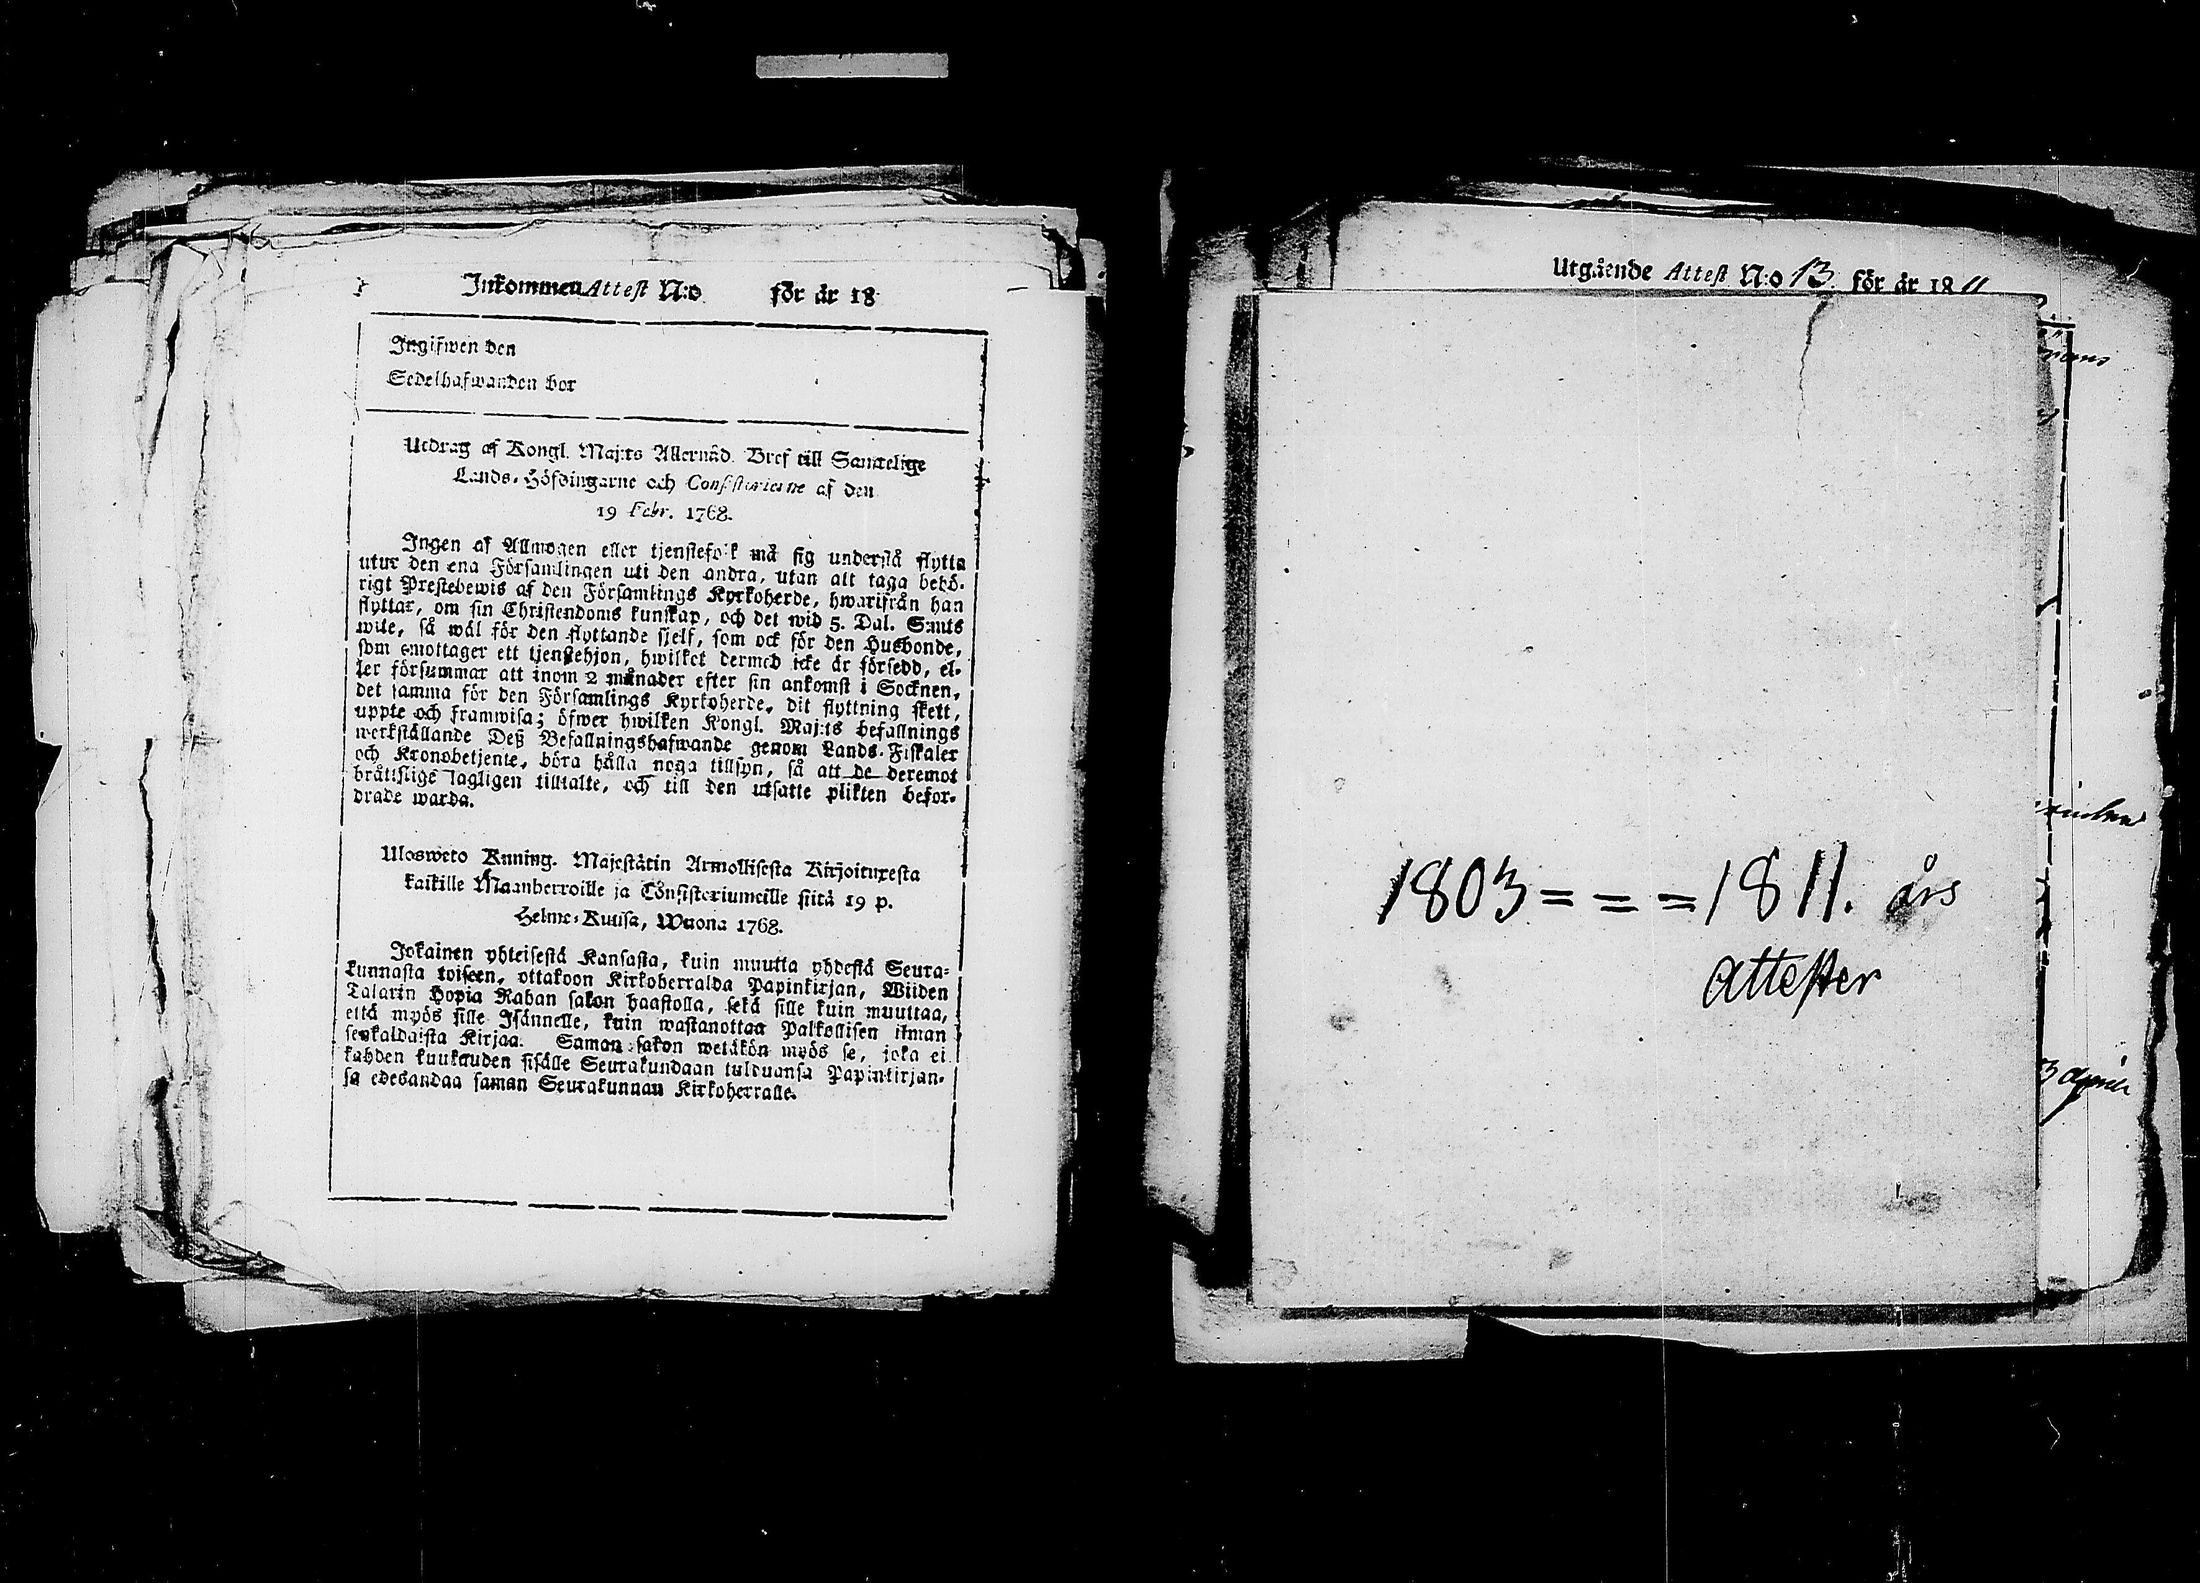 Inkommen Attest N:o för år 18
Ingifwen den
Sedelhafwanden bor
Utdrag af Kongl. Maj:ts Allernåd. Bref till Samtelige
Lands-Höfdingarne och Consistorierne af den
19 Febr. 1768.
Ingen af Allmogen eller tjenstefolk må sig understå flytta
utur den ena Församlingen uti den andra, utan att taga behö-
rigt Prestebewis af den Församlings Kyrkoherde, hwarifrån han
flyttar, om sin Christendoms kunskap, och det wid 5. Dal. S:mts
wite, så wäl för den flyttande sjelf, som ock för den Husbonde,
som emottager ett tjenstehjon, hwilket dermed icke är försedd, el-
ler försummar att inom 2 månader efter sin ankomst i Socknen,
det samma för den Församlings Kyrkoherde, dit flyttning skett,
uppte och framwisa; öfwer hwilken Kongl. Maj:ts befallnings
werkställande Deß Befallningshafwande genom Lands-Fiskaler
och Kronobetjente, böra hålla noga tillsyn, så att de deremot
bråttslige lagligen tilltalte, och till den utsatte plikten befor-
drade warda.
Ulosweto Kuning. Majestätin Armollisesta Kirjoituxesta
kaikille Maanherroille ja Consistoriumeille siitä 19 p.
Helme-Kuusa, Wuona 1768.
Jokainen yhteisestä Kansasta, kuin muutta yhdestä Seura-
kunnasta toiseen, ottakoon Kirkoherralda Papinkirjan, Wiiden
Talarin Hopia Rahan sakon haastolla, sekä sille kuin muuttaa,
että myös sille Isännelle, kuin wastanottaa Palkollisen ilman
senkaldaista Kirjaa. Saman sakon wetäkön myös se, joka ei
kahden kuukauden sisälle Seurakundaan tulduansa Papinkirjan-
sa edesandaa saman Seurakunnan Kirkoherralle.
Utgående Attest N:o 13 för år 18 11
1803 = = = 1811. års
attester
3 April